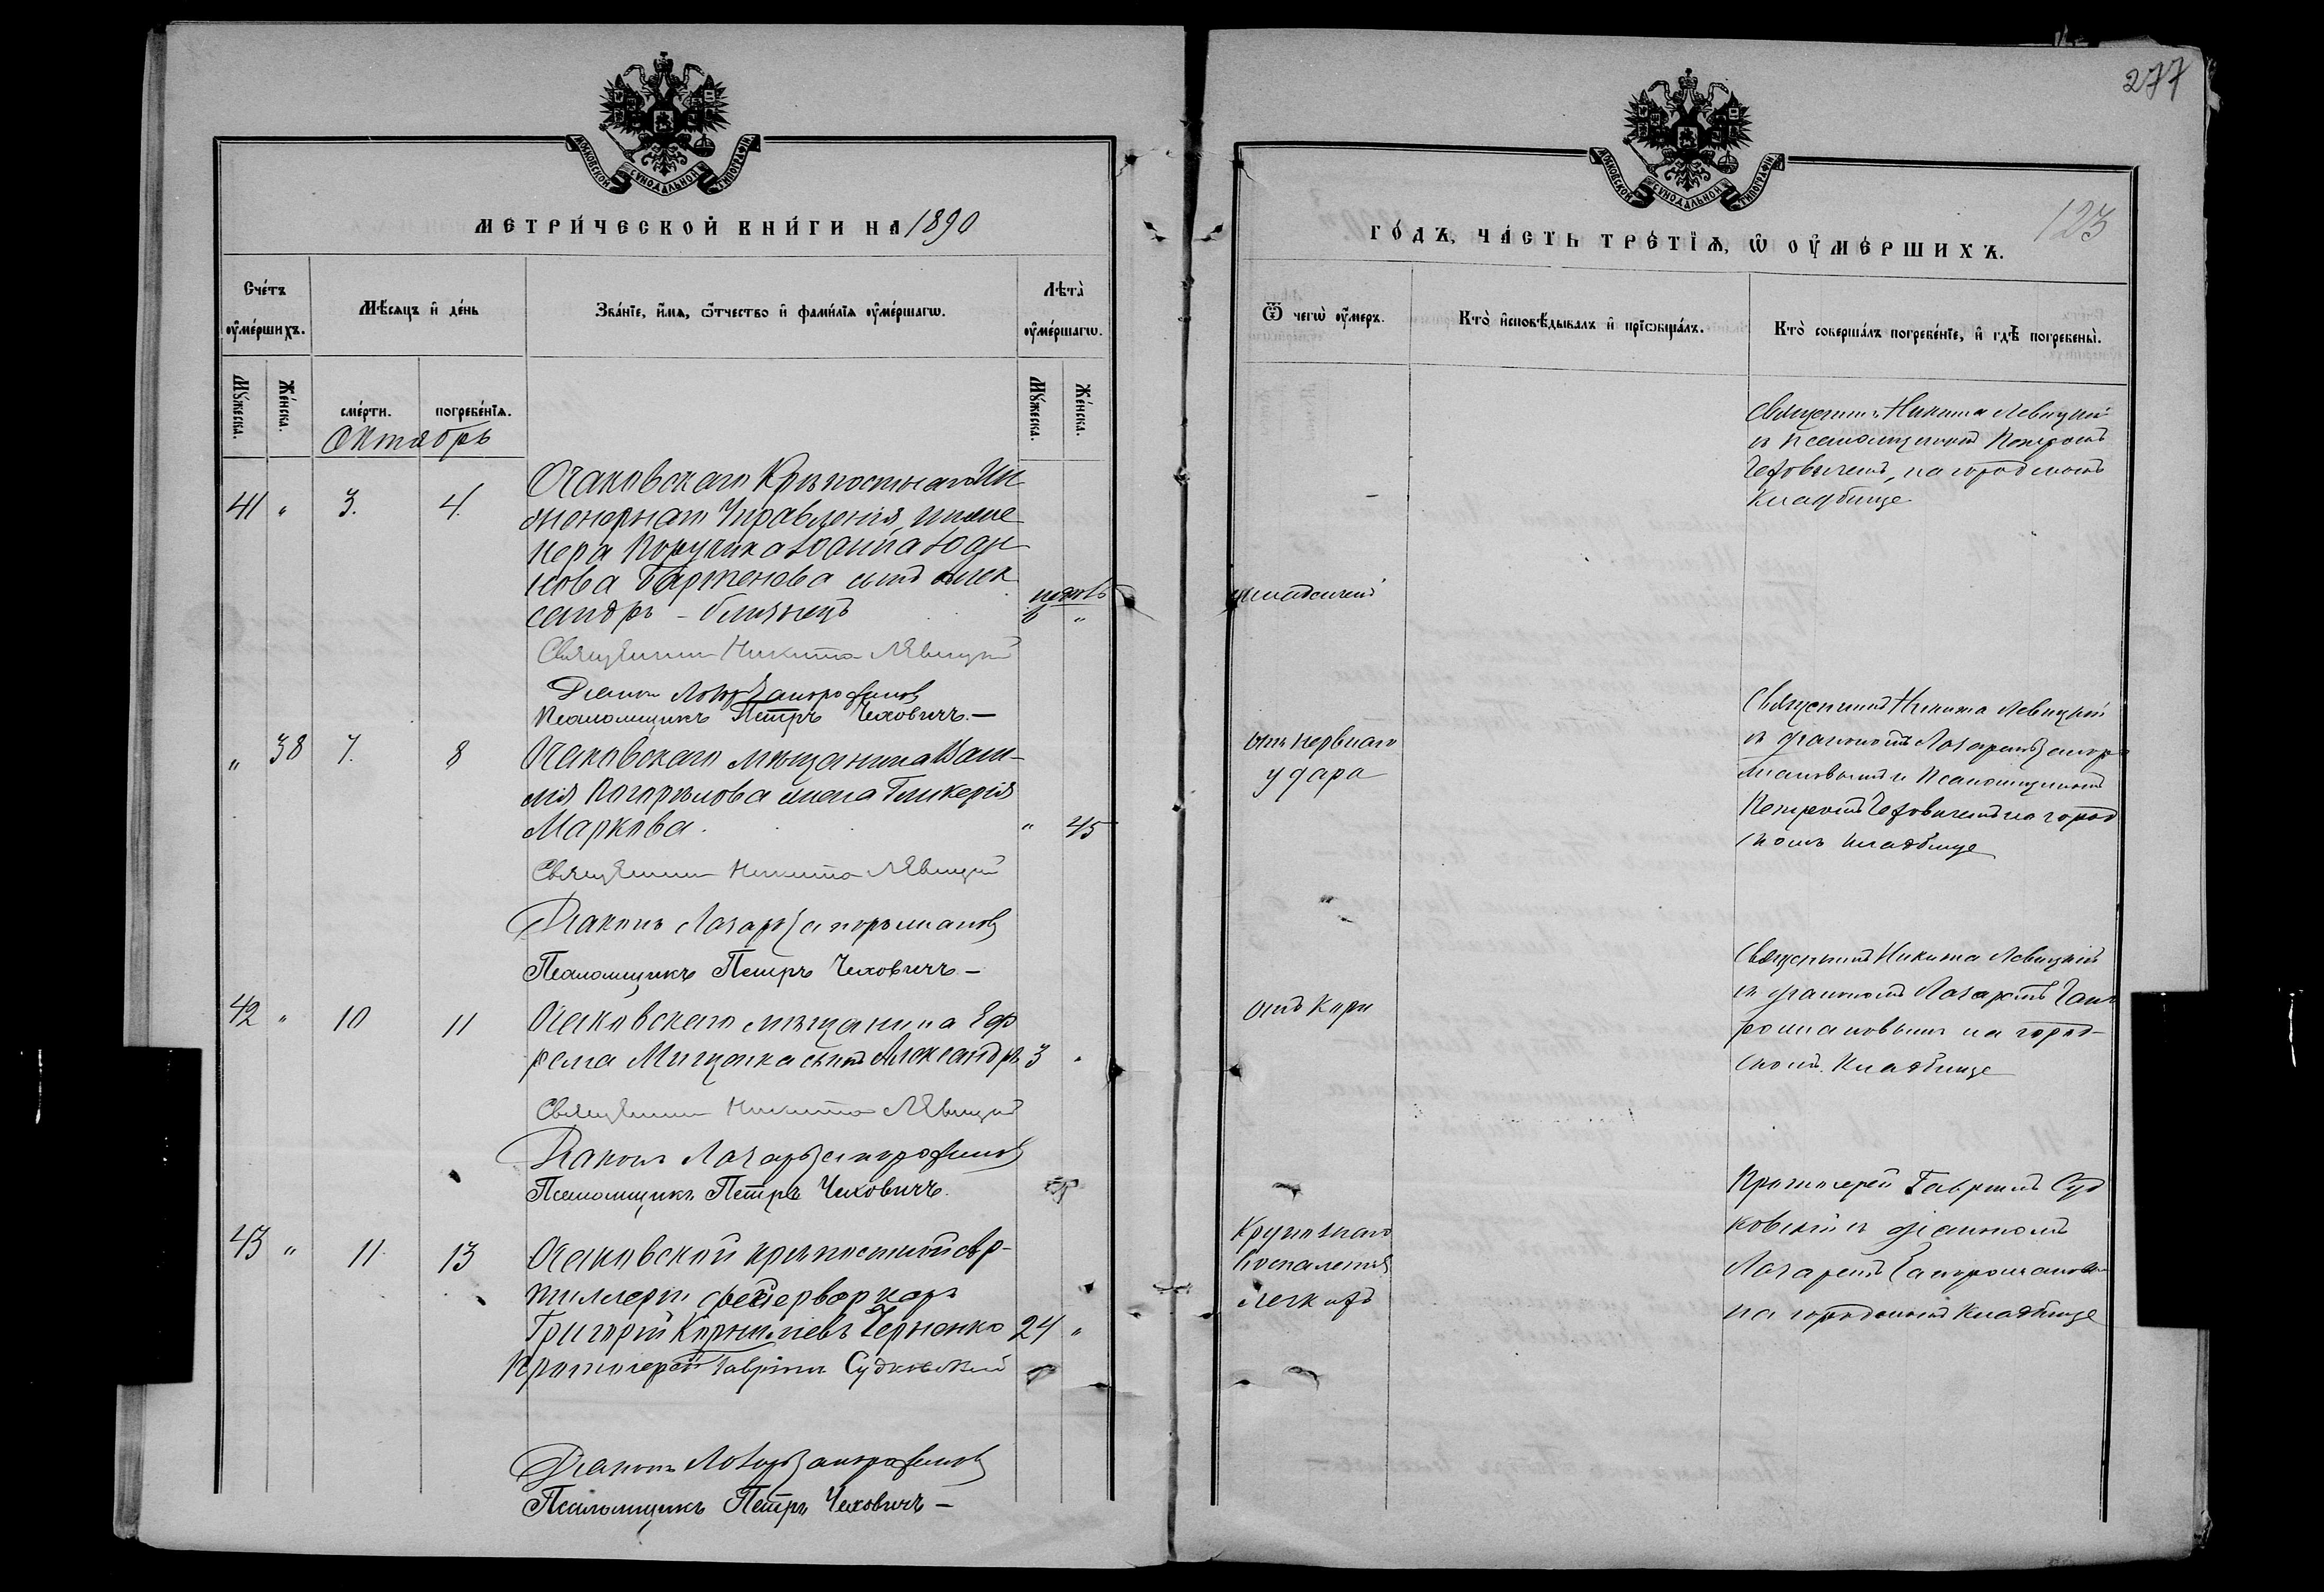 277
МОСКОВСКОЙ СѴНОДАЛЬНОЙ ТИПОГРАФІИ
МЕТРИ́ЧЕСКОЙ КНИ́ГИ НА 1890
Счетъ ᲂумершихъ.
Мѣсяцъ и день
Званіе, имя, ѿтчество и фамилія ᲂумершагѡ.
Лѣта ᲂумершагѡ.
Мужеска. Женска.
смерти. погребенія.
Мужеска. Женска.
Октябрь
41 " 3. 4.
Очаковскаго Крѣпостнаго Ин
женернаго Управленія, инже
нера Поручика Іоанна
сынъ Алек
сандръ - близнецъ
"
Священникъ Никита Левицкій
Діаконъ Лазарь
Псаломщикъ Петръ Чеховичъ. —
" 38 7. 8
Очаковскаго мѣщанина Васи-
лія Погорѣлова жена Гликерія
Маркова. " 45
Священникъ Никита Левицкій
Діаконъ Лазарь
Псаломщикъ Петръ Чеховичъ. —
42 " 10 11
Очаковскаго мѣщанина Еф
рема Мищенка сынъ Александръ 3 "
Священникъ Никита Левицкій
Діаконъ Лазарь
Псаломщикъ Петръ Чеховичъ.
43 " 11. 13
Очаковской крѣпостной Ар-
тиллеріи фейерверкеръ
Григорій Корниліевъ Черненко 24 "
Протоіерей Гавріилъ Судковскій
Діаконъ Лазарь
Псаломщикъ Петръ Чеховичъ —
МОСКОВСКОЙ СѴНОДАЛЬНОЙ ТИПОГРАФІИ
123
ГОДЪ, ЧАСТЬ ТРЕТІЯ, Ѡ ОУМЕРШИХЪ.
Ѿ чегѡ ᲂумеръ.
Кто исповѣдывалъ и пріѡбщалъ.
Кто совершалъ погребеніе, и гдѣ погребены.
Священникъ Никита Левицкій
съ Псаломщикомъ Петромъ
Чеховичемъ, на городскомъ
Кладбище
Отъ нервнаго
удара
Священникъ Никита Левицкій
съ діакономъ Лазаремъ
и Псаломщикомъ
Петромъ Чеховичемъ на город
скомъ кладбище
отъ Кори
Священникъ Никита Левицкій
съ діакономъ Лазаремъ
на город-
скомъ Кладбище
Крупознаго
Воспаленія
легкихъ
Протоіерей Гавріилъ Суд
ковскій съ діакономъ
Лазаремъ
на городскомъ Кладбище